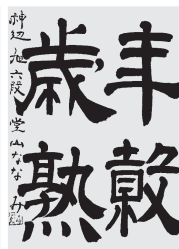 年穀
歳熟
神辺 旭 六段 堂山ななみ